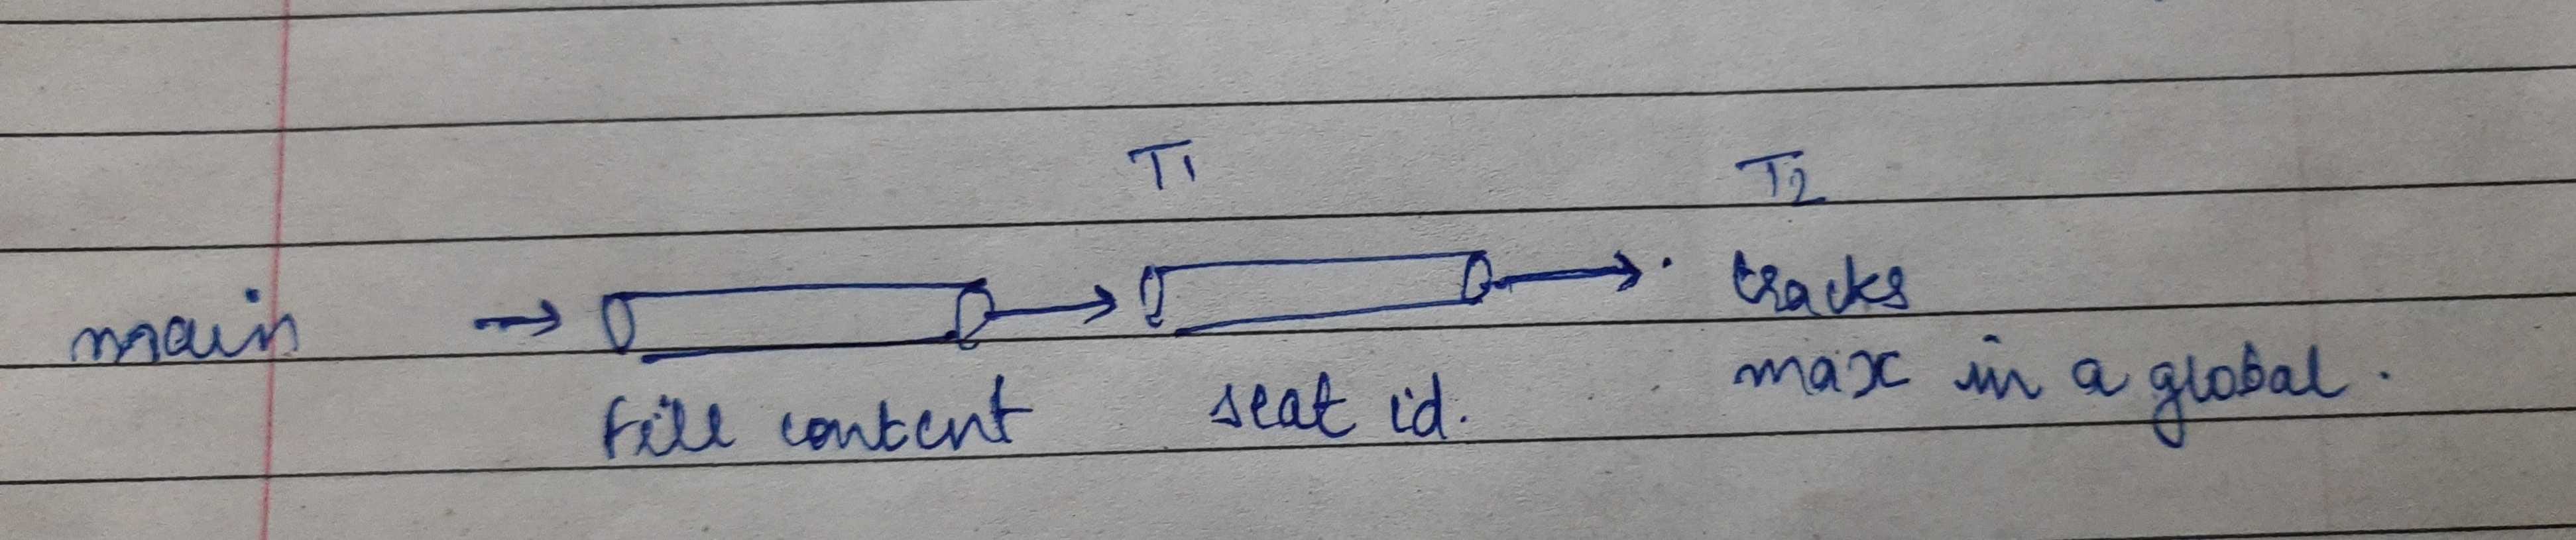 T1
T2
main
tracks
max in a global.
fill content
seat id.